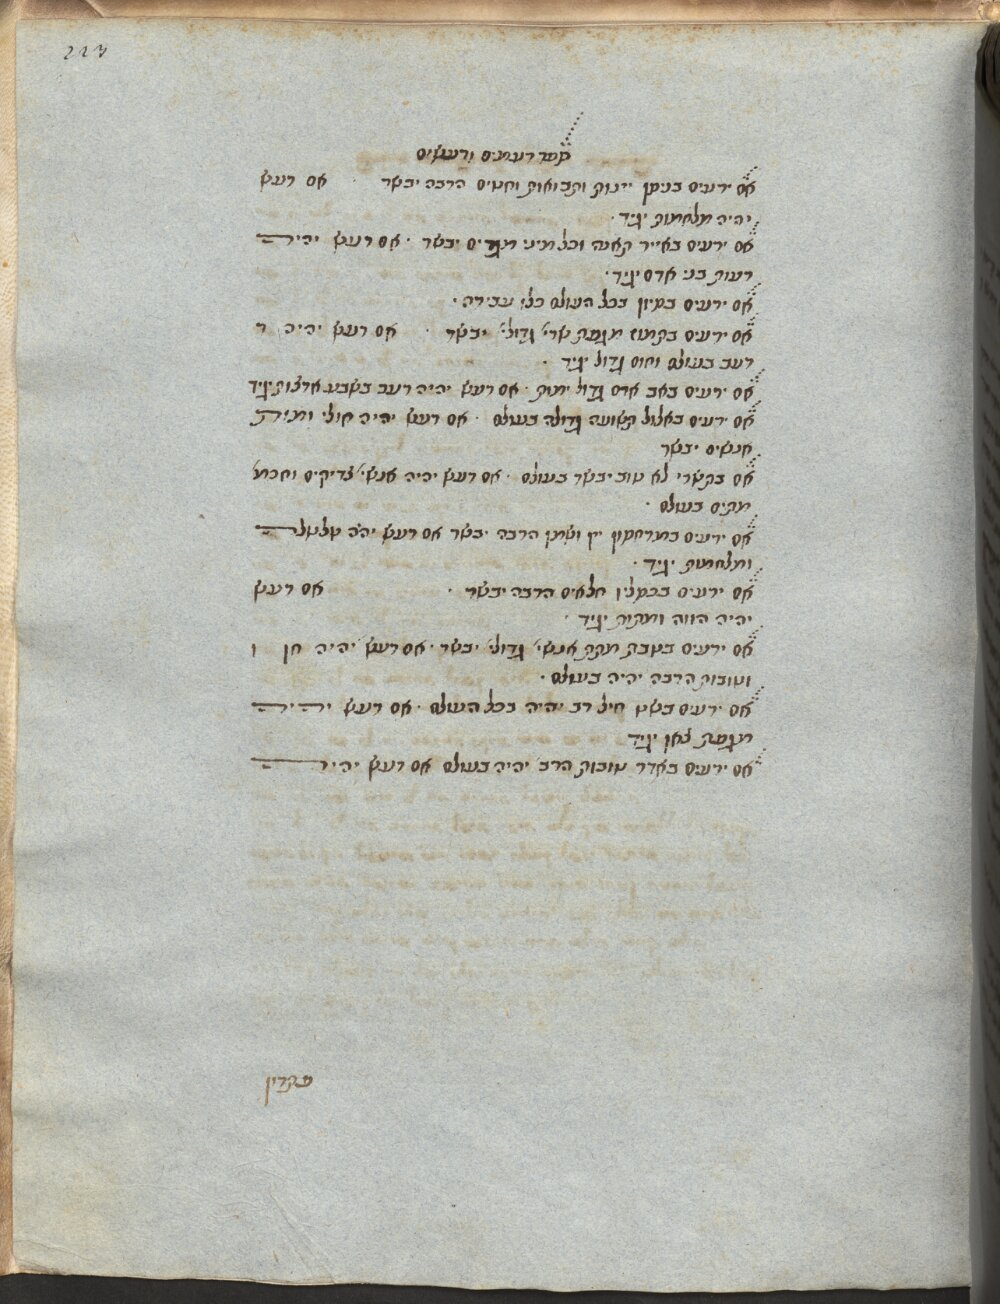 223
ספר רעמים ורעשים
אם ירעים בניסן יינות ותבואות וחטים הרבה יבשר אם רעש
יהיה מלחמות יגיד
אם ירעים באייר קאנה וכל מיני מגדים יבשר אם רעש יהיה
רעות בני אדם יגיד
אם ירעים בסיון בכל העולם כלי עבירה
אם ירעים בתמוז מגפת שרי׳ גדולי׳ יבשר אם רעש יהיה ר
רעב בעולם וחום גדול יגיד
אם ירעים באב אדם גדול ימות אם רעש יהיה רעב בשבע ארצות יגיד
אם ירעים באלול תשועה גדולה בעולם אם רעש יהיה חולי ומית
אנשים יבשר
אם בתשרי לא טוב יבשר בעולם אם רעש יהיה אנשי׳ צדיקים וחכמ׳
מתים בעולם
אם ירעים במרחשון יין ושמן הרבה יבשר אם רעש יהיה טלטלה
ומלחמות יגיד
אם ירעים בכסלין חלאים הרבה יבשר אם רעש
יהיה הווה ומתית יגיד
אם ירעים בטבת מתת אנשי׳ גדולי׳ יבשר אם רעש יהיה חן ו
וטובות הרבה יהיה בעולם
אם ירעים בשבט חיל רב יהיה בכל העולם אם רעש יהיה
מגפת צאן יגיד
אם ירעים באדר טובות הרב׳ יהיה בעולם אם רעש יהיה